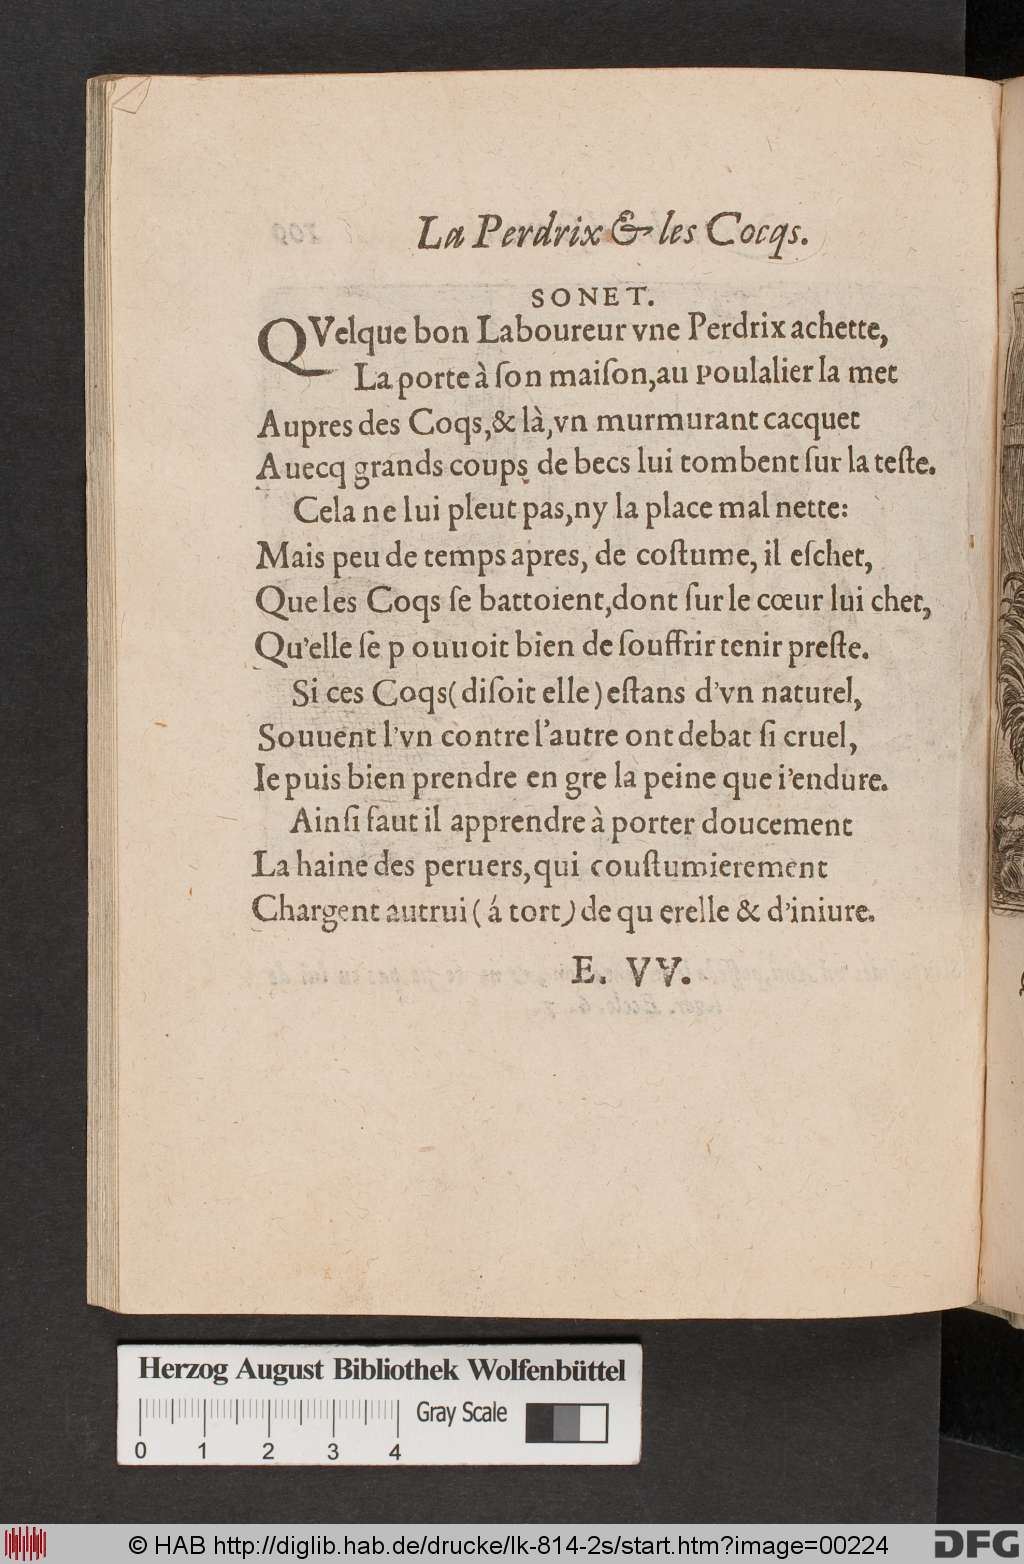 La Perdrix & les Cocqs.
SONET.
QVelque bon Laboureur vne Perdrix achette,
La porte à ſon maiſon,au poulalier la met
Aupres des Coqs,& là,vn murmurant cacquet
Auecq grands coups de becs lui tombent ſur la teſte.
Cela ne lui pleut pas,ny la place mal nette:
Mais peu de temps apres, de coſtume, il eſchet,
Que les Coqs ſe battoient,dont ſur le cœur lui chet,
Qu'elle ſe p ouuoit bien de ſouffrir tenir preſte.
Si ces Coqs(diſoit elle) eſtans d'vn naturel,
Souuent l'vn contre l'autre ont debat ſi cruel,
Ie puis bien prendre en gre la peine que i'endure.
Ainſi faut il apprendre à porter doucement
La haine des peruers,qui couſtumierement
Chargent autrui (á tort) de qu erelle & d'iniure.
E. VV.
Herzog August Bibliothek Wolfenbüttel
Gray Scale
0 1 2 3 4
© HAB http://diglib.hab.de/drucke/lk-814-2s/start.htm?image=00224
DFG